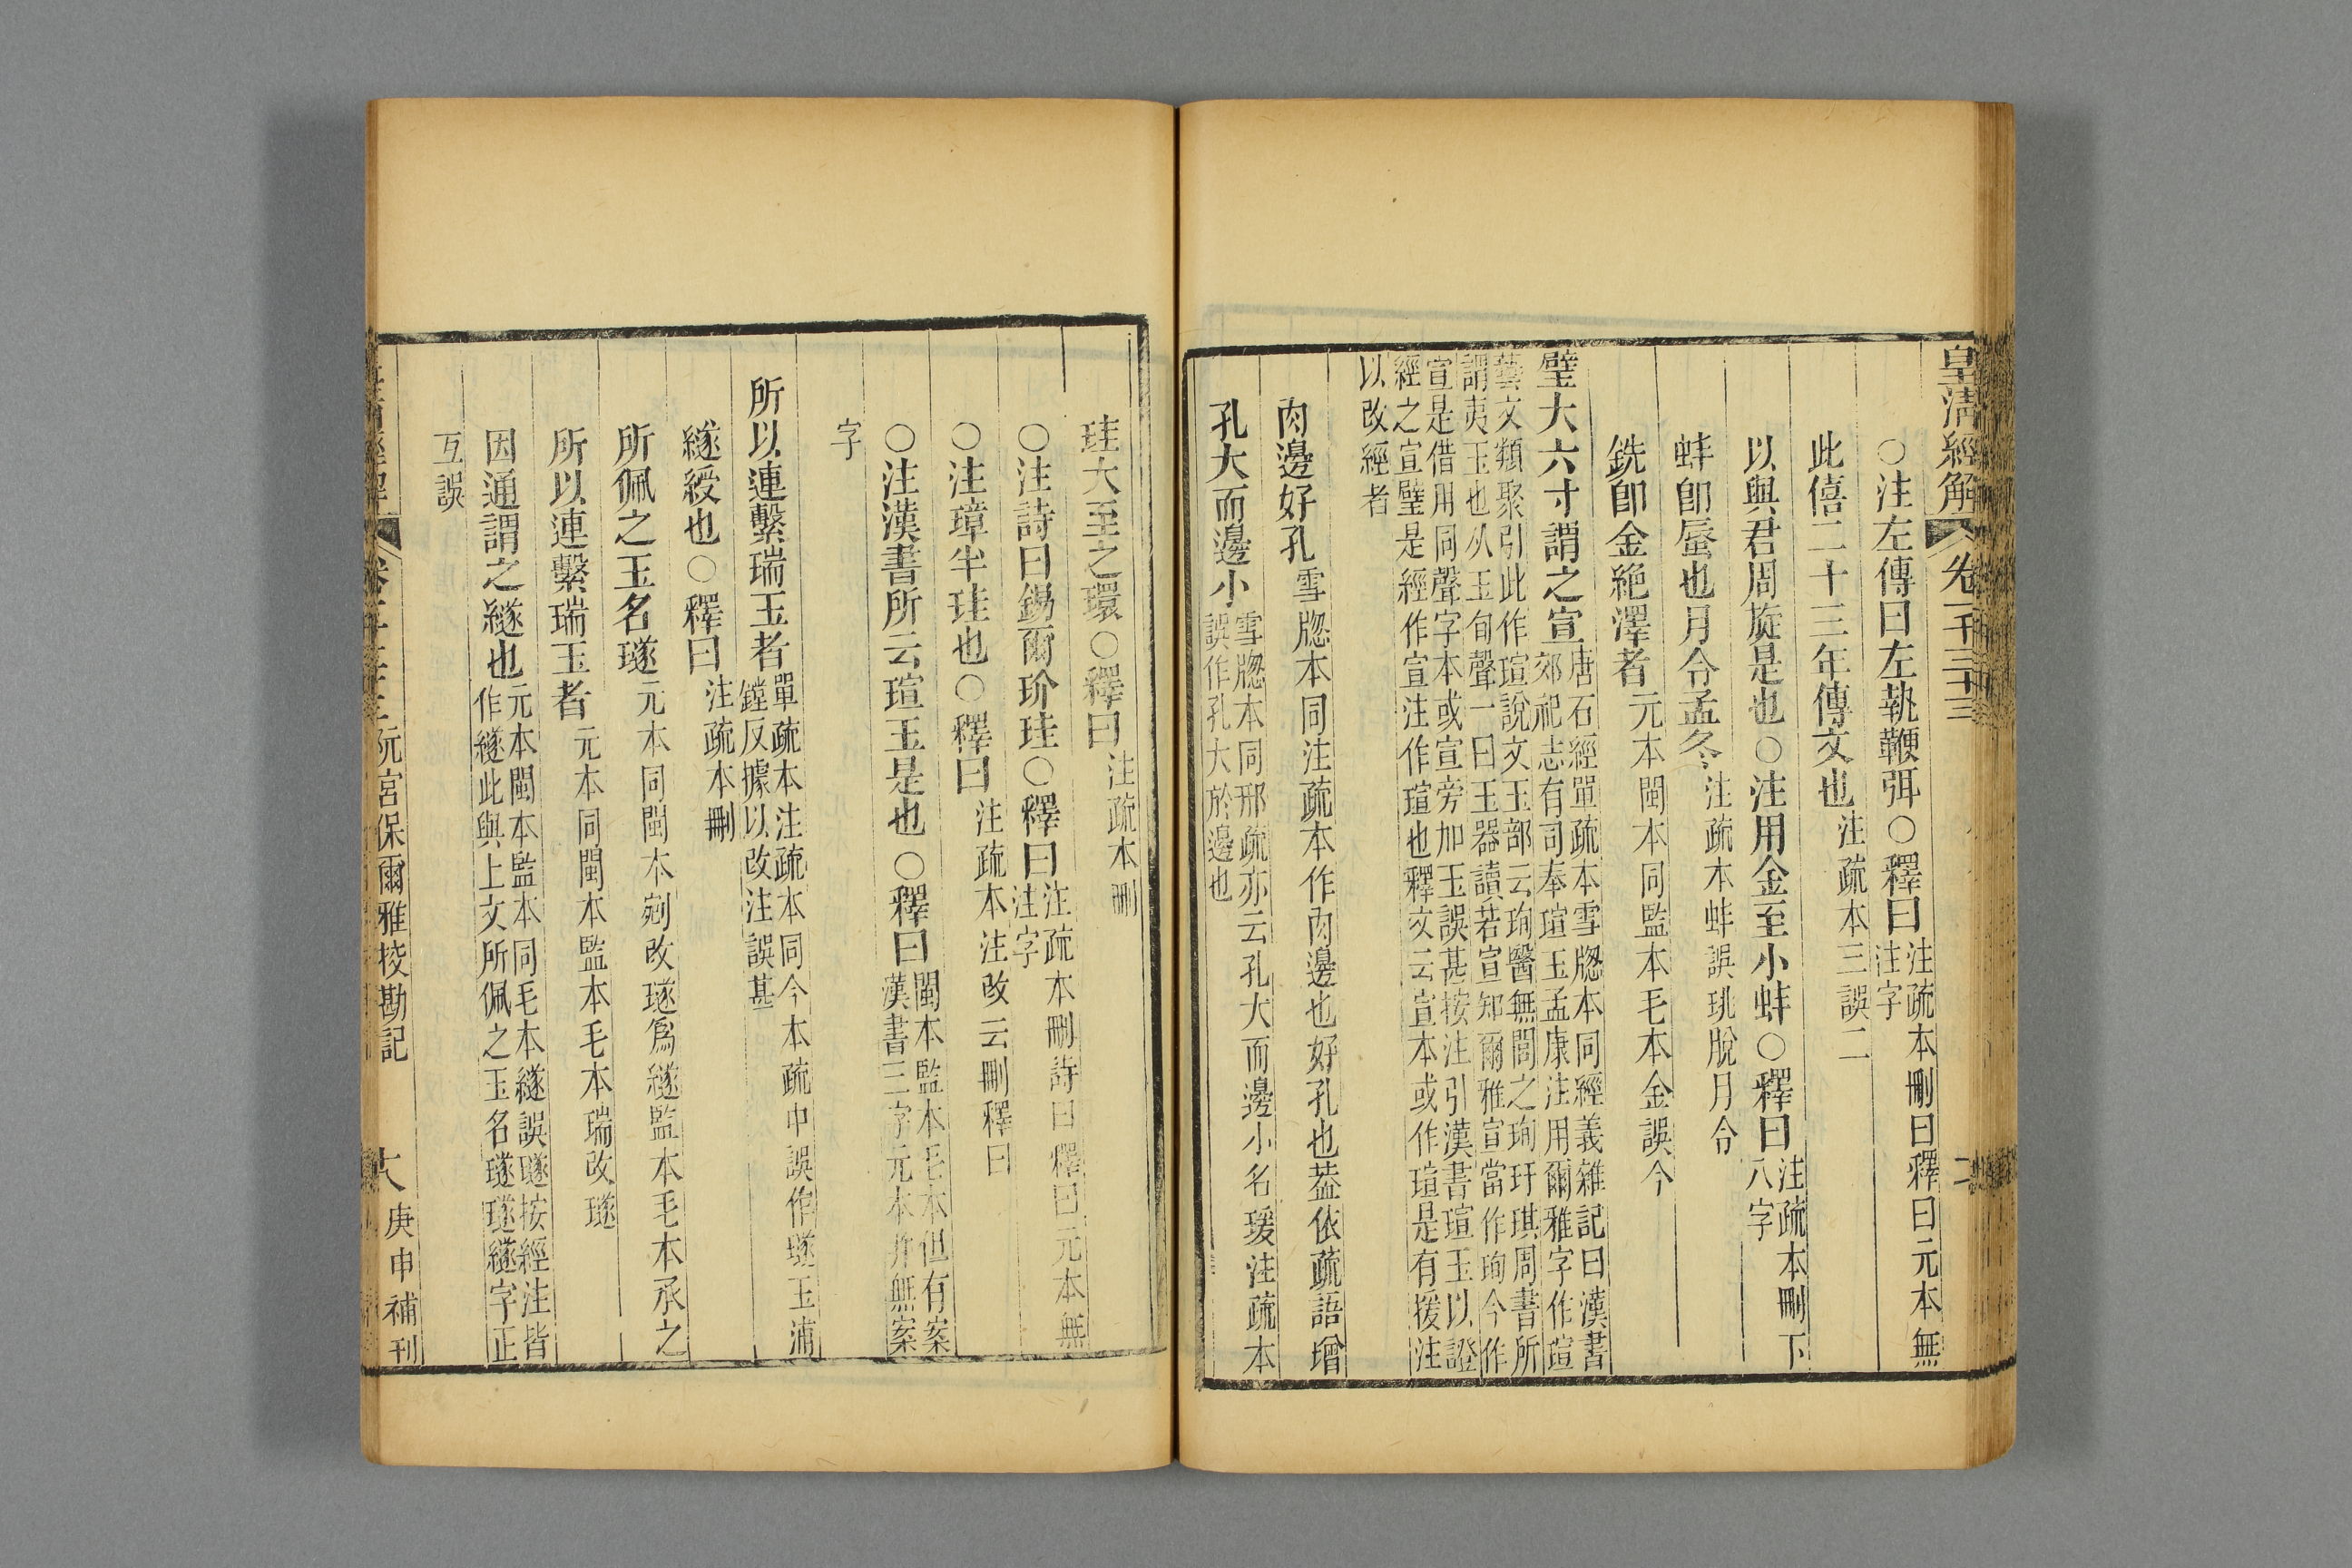 皇清經解 卷一千三十三
○注左傳曰左執鞭弭○釋曰注疏本刪曰釋曰元本無注字
此僖二十三年傳文也注疏本三誤二
以與君周旋是也○注用金至小蚌○釋曰注疏本刪下八字
蚌卽蜃也月令孟冬注疏本蚌誤珧脫月令
銑卽金絶澤者元本閩本同監本毛本金誤今
璧大六寸謂之宣唐石經單疏本雪牕本同經義雜記曰漢書郊祀志有司奉瑄玉孟康注用爾雅字作瑄
藝文類聚引此作瑄說文玉部云珣醫無閭之珣玗琪周書所謂夷玉也从玉旬聲一曰玉器讀若宣知爾雅宣當作珣今作
宣是借用同聲字本或宣旁加玉誤甚按注引漢書瑄玉以證經之宣璧是經作宣注作瑄也釋文云宣本或作瑄是有援注
以改經者
肉邊好孔雪牕本同注疏本作肉邊也好孔也葢依疏語增
孔大而邊小雪牕本同邢疏亦云孔大而邊小名瑗注疏本誤作孔大於邊也
珪大至之環○釋曰注疏本刪
○注詩曰錫爾玠珪○釋曰注疏本刪詩曰釋曰元本無注字
○注璋半珪也○釋曰注疏本注改云刪釋曰
○注漢書所云瑄玉是也○釋曰閩本監本毛本但有案漢書三字元本幷無案
字
所以連繫瑞玉者單疏本注疏本同今本疏中誤作璲玉浦鏜反據以改注誤甚
繸綬也○釋曰注疏本刪
所佩之玉名璲元本同閩本剜改璲爲繸監本毛本承之
所以連繫瑞玉者元本同閩本監本毛本瑞改璲
因通謂之繸也元本閩本監本同毛本繸誤璲按經注皆作繸此與上文所佩之玉名璲璲繸字正
互誤
阮宮保爾雅挍勘記 庚申補刊